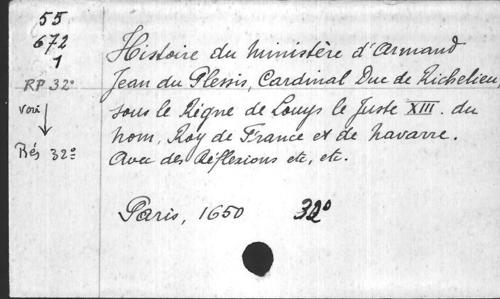 55
672
1
RP 32°
Bés 32°
Histoire du Ministère d'Armand
Jean du Plessis, Cardinal Duc de Richelieu,
sous le Règne de Louys le Juste XIII. du
nom, Roy de France et de Navarre.
Avec des Réflexions etc, etc.
Paris, 1650 32°